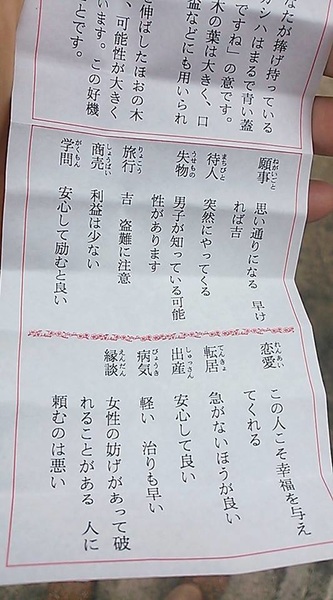 なたが捧げ持っている
カシハはまるで青い蓋
ですね」の意です。
木の葉は大きく、口
盛などにも用いられ
と伸ばしたほおの木
、可能性が大きく
います。この好機
とです。
願事 ねがいごと 思い通りになる 早け
れば吉
待人 まちびと 突然にやってくる
失物 うせもの 男子が知っている可能
性があります
旅行 りょこう 吉 盗難に注意
商売 しょうばい 利益は少ない
学問 がくもん 安心して励むと良い
恋愛 れんあい この人こそ幸福を与え
てくれる
転居 てんきょ 急がないほうが良い
出産 しゅっさん 安心して良い
病気 びょうき 軽い 治りも早い
縁談 えんだん 女性の妨げがあって破
れることがある 人に
頼むのは悪い